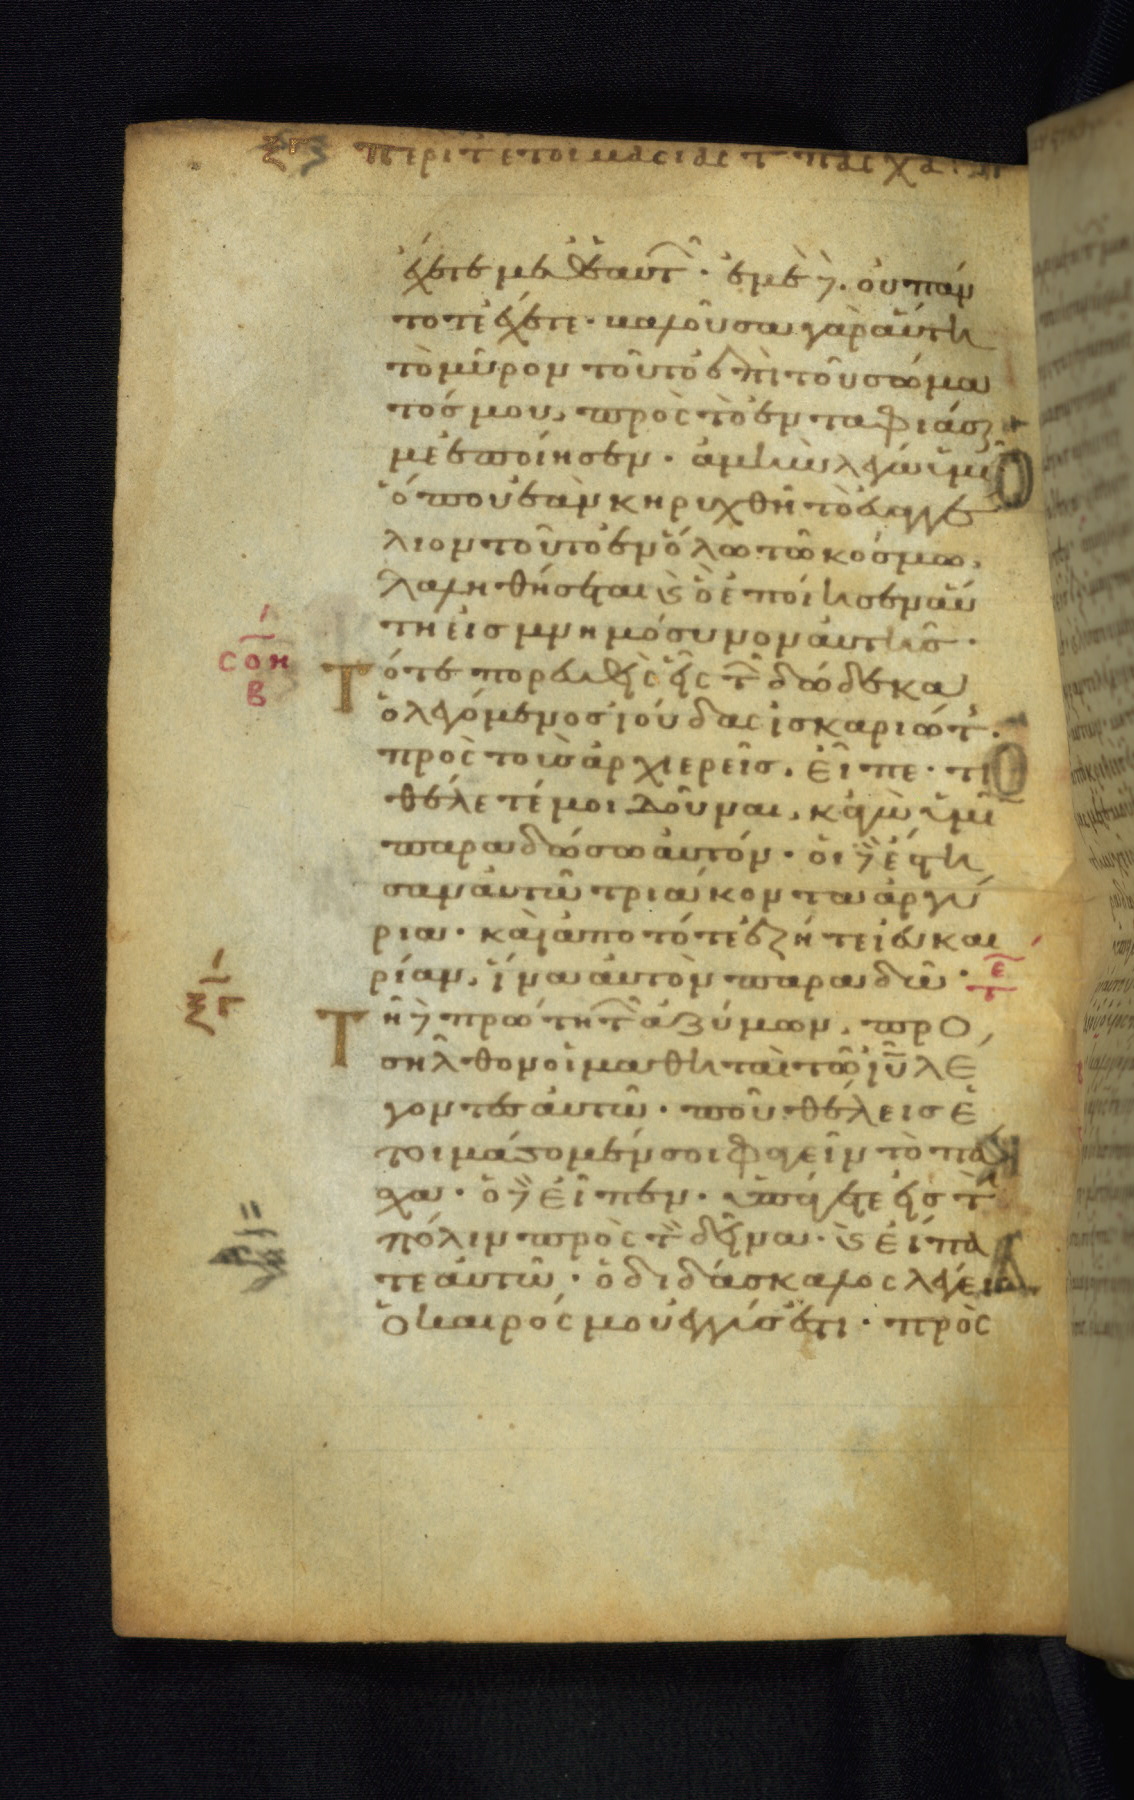 ξγ περὶ τ ετοιμασίας τ πάσχα:
ἔχετε μεθ ἑαυτῶν· ἐμὲ δὲ οὐ πάν
τοτε ἔχετε· βαλοῦσα γὰρ αὕτη
τὸ μύρον τοῦτο ἐπὶ τοῦ σώμα
τός μου, πρὸς τὸ ἐνταφιάσαι
με ἐποίησεν· ἀμὴν λέγω ὑμῖν
ὅπου ἐὰν κηρυχθῆ τὸ εὐαγγέ
λιον τοῦτο ἐν ὅλω τῶ κόσμω,
λαληθήσεται καὶ ὃ ἐποίησεν αὕ
τη εἰς μνημόσυνον αὐτῆς·
σοη
β
Τότε πορευθεὶς εἷς τῶν δώδεκα
ὁ λεγόμενος ἰούδας ἰσκαριώτης
πρὸς τοὺς ἀρχιερεῖς, εἶπε· τί
θέλετέ μοι δοῦναι, καγὼ ὑμῖν
παραδώσω αὐτόν· οἱ δὲ ἔστη
σαν αὐτῶ τριάκοντα ἀργύ
ρια· καὶ ἀπὸ τότε ἐζήτει εὐκαι
ρίαν, ἵνα αὐτὸν παραδῶ·
Τῆ δὲ πρώτη τῶν ἀζύμων, προ
σῆλθον οἱ μαθηταὶ τῶ ιῦ λέ
γοντες αὐτῶ· ποῦ θέλεις ἑ
τοιμάσομέν σοι φαγεῖν τὸ πάσ
χα· ὁ δὲ εἶπεν· ὑπάγετε εἰς τὴν
πόλιν πρὸς τὸν δεῖνα· καὶ εἴπα
τε αὐτῶ· ὁ διδάσκαλος λέγει
ὁ καιρός μου ἐγγύς ἐστι· πρὸς